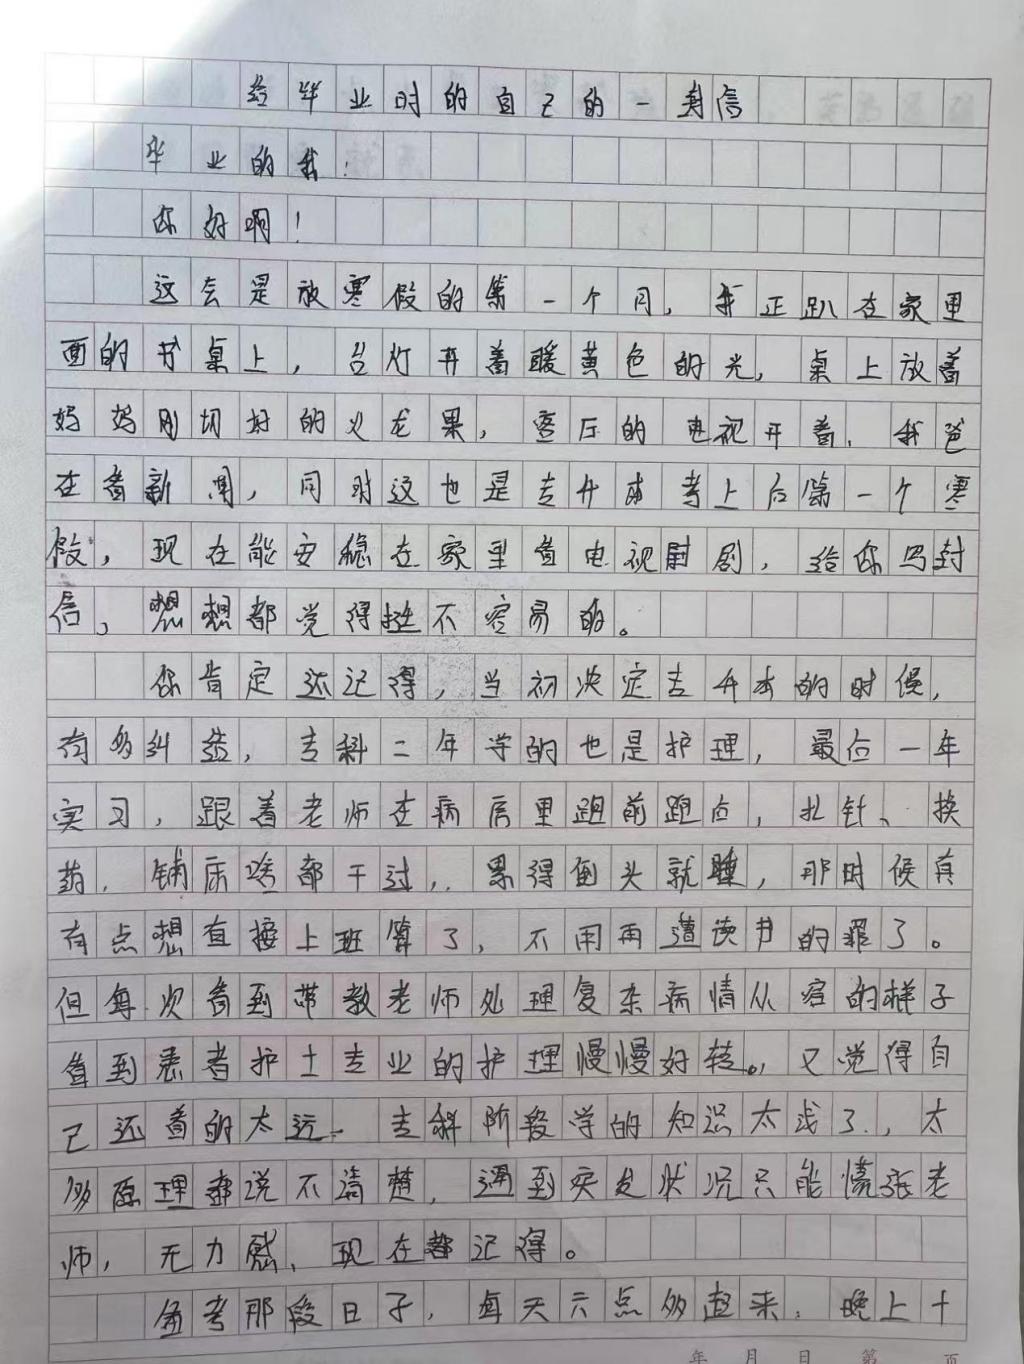 给毕业时的自己的一封信
毕业的我:
你好啊!
这会是放寒假的第一个月,我正趴在家里
面的书桌上,台灯开着暖黄色的光,桌上放着
妈妈刚切好的火龙果,客厅的电视开着、我爸
在看新闻,同时这也是专升本考上后第一个寒
假,现在能安稳在家里看电视剧,给你写封
信,想想都觉得挺不容易的。
你肯定还记得,当初决定专升本的时候,
有多纠结,专科二年学的也是护理,最后一年
实习,跟着老师在病房里跑前跑后,扎针、换
药,铺床啥都干过,累得倒头就睡,那时候真
有点想直接上班算了,不用再遭读书的罪了。
但每次看到带教老师处理复杂病情从容的样子
看到患者护士专业的护理慢慢好转。,又觉得自
己还着的太远、专科阶段学的知识太浅了,太
多原理都说不清楚,遇到突发状况只能慌张老
师,无力感、现在都记得。
备考那段日子,每天六点多起来,晚上十
年 月 日 第 页